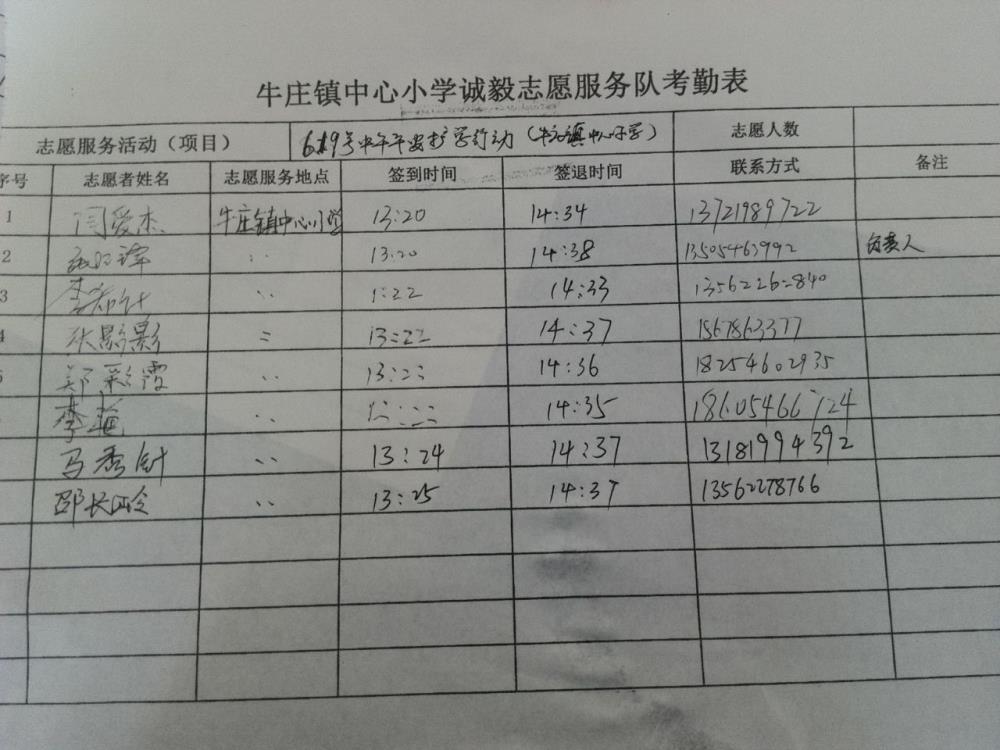 牛庄镇中心小学诚毅志愿服务队考勤表
志愿服务活动（项目） 6.19号中午平安护学行动（牛庄镇中心小学） 志愿人数
序号 志愿者姓名 志愿服务地点 签到时间 签退时间 联系方式 备注
1 闫爱杰 牛庄镇中心小学 13:20 14:34 13721989722
2 13:20 14:38 13505463992 负责人
3 1:22 14:33
4 张影影 13:22 14:37 1567863377
5 郑彩霞 14:36 18254602935
李海 14:35
马秀针 13:24 14:37 13181994392
邵长岭 13:25 14:37 13562278766